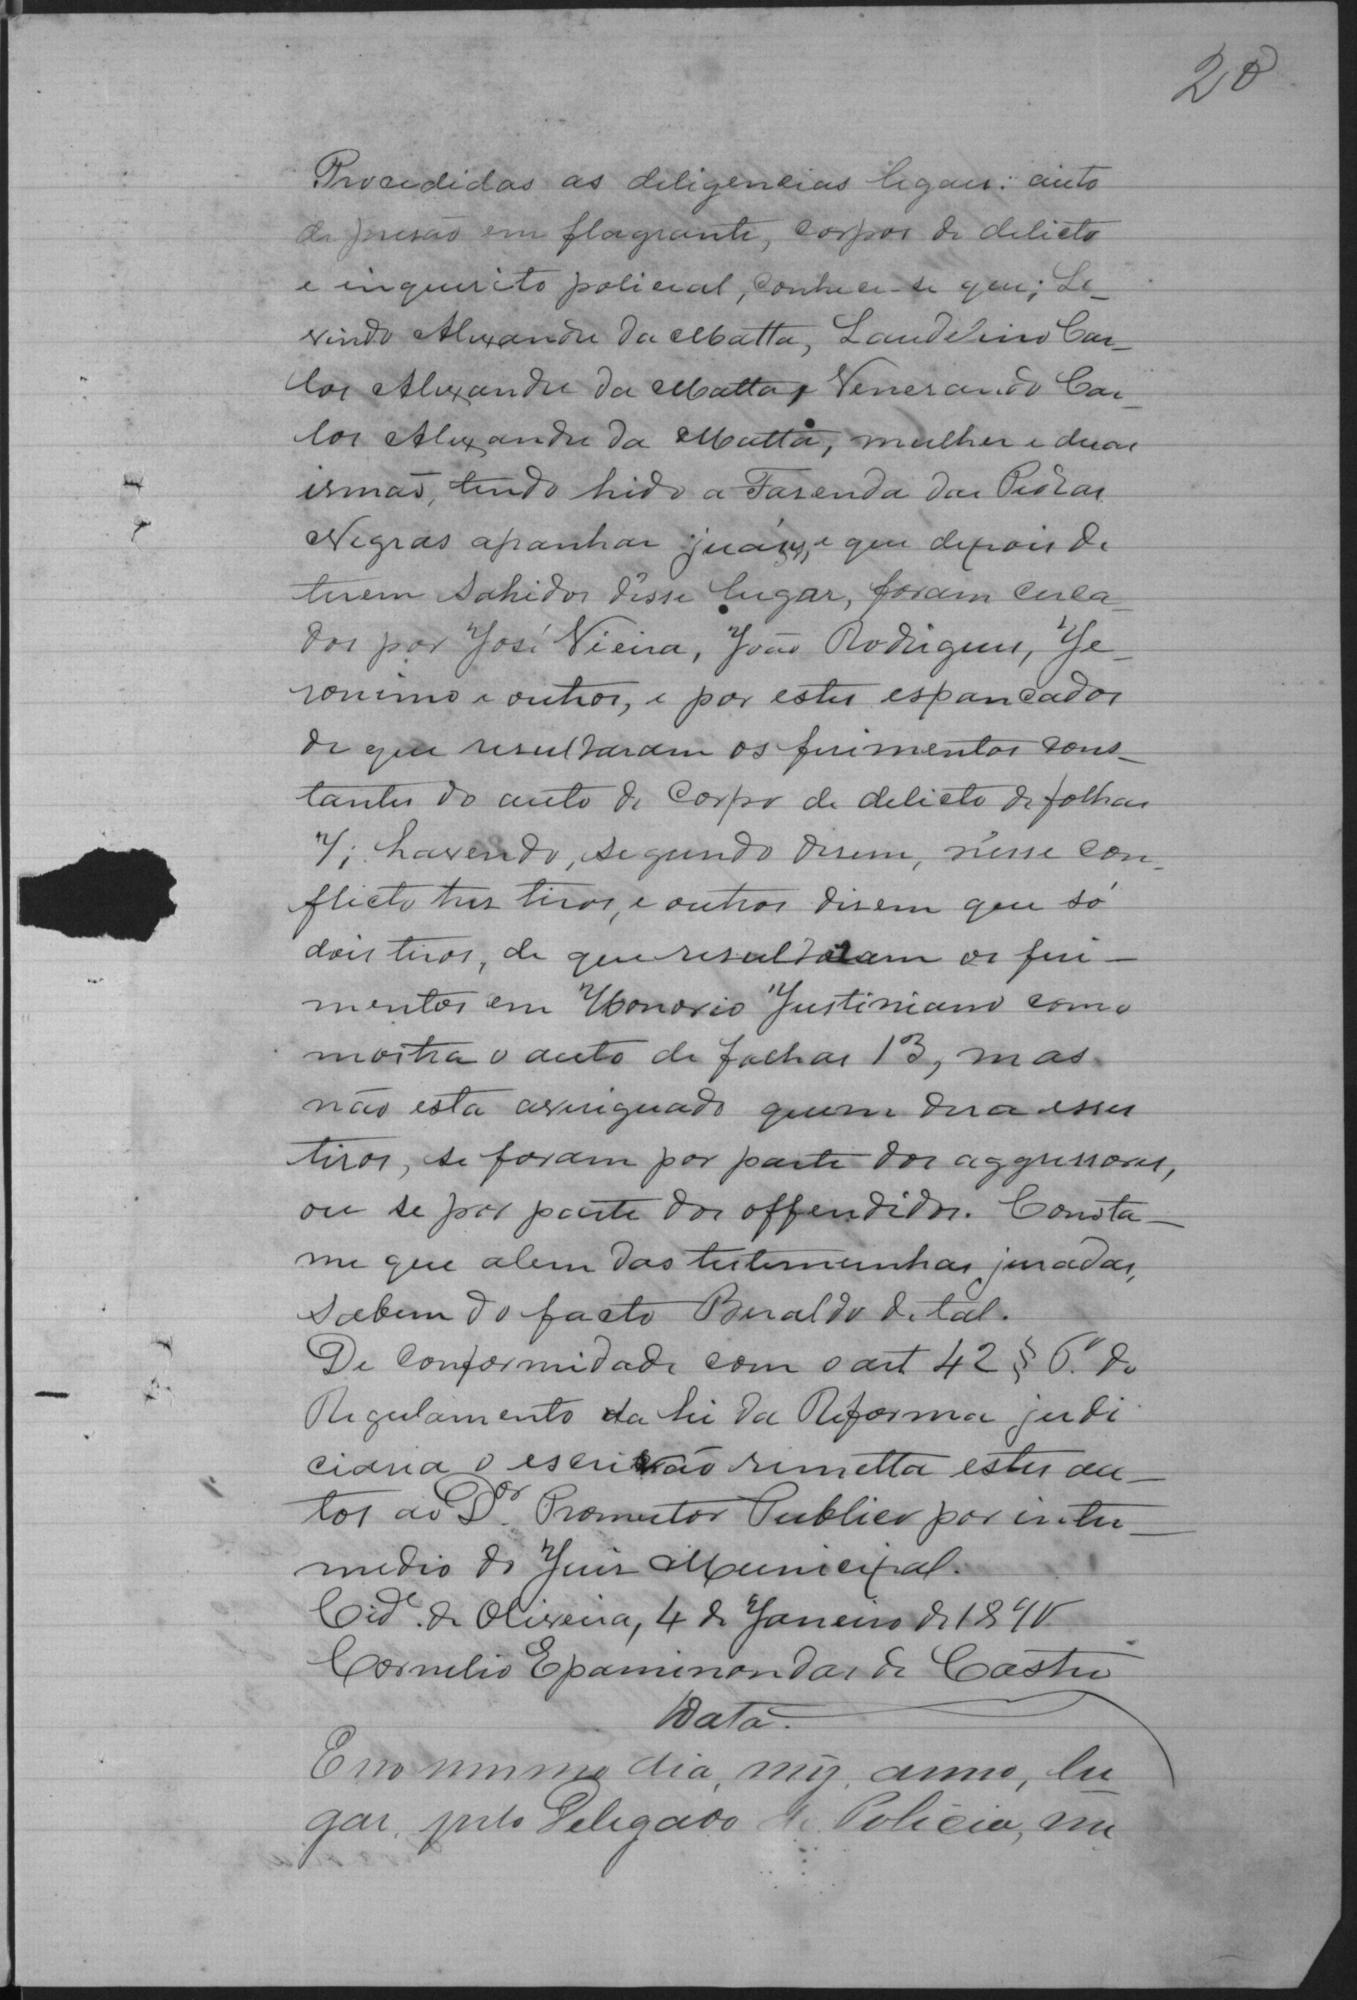 20
Procedidas as diligencias legaes: auto
de prisão em flagrante, corpos de delicto
e inquerito policial, conhece-se que; Le-
vindo Alexandre da Matta, Laudelino Car-
los Alexandre da Matta, Venerando Car-
los Alexandre da Matta, mulher e duas
irmãs, tendo hido a Fazenda das Pedras
Negras apanhar e que depois de
terem sahidos d'esse lugar, foram cerca-
dos por José Vieira, João Rodrigues, Je-
ronimo e outros, e por estes espancados
de que resultaram os ferimentos cons-
tantes do auto de corpo de delicto de folhas
7; havendo, segundo disem, n'esse con-
flicto tres tiros, e outros disem que só
dois tiros, de que resultaram os feri-
mentos em Honorio Justiniano como
mostra o auto de folhas 13, mas
não está averiguado quem dera esses
tiros, se foram por parte dos aggressores,
ou se por parte dos offendidos. Consta-
me que alem das testemunhas juradas,
sabem do facto Beraldo de tal.
De conformidade com o art 42 § 6.º do
Regulamento da Lei da Reforma judi
ciaria o escrivão remetta estes au-
tos ao Dor. Promotor Publico por inter-
medio do Juis Municipal.
Cide. de Oliveira, 4 de Janeiro de 1890
Cornelio Epaminondas de Castro
Data.
E no mesmo dia, mez, anno, lu
gar, pelo Delegado de Policia, me